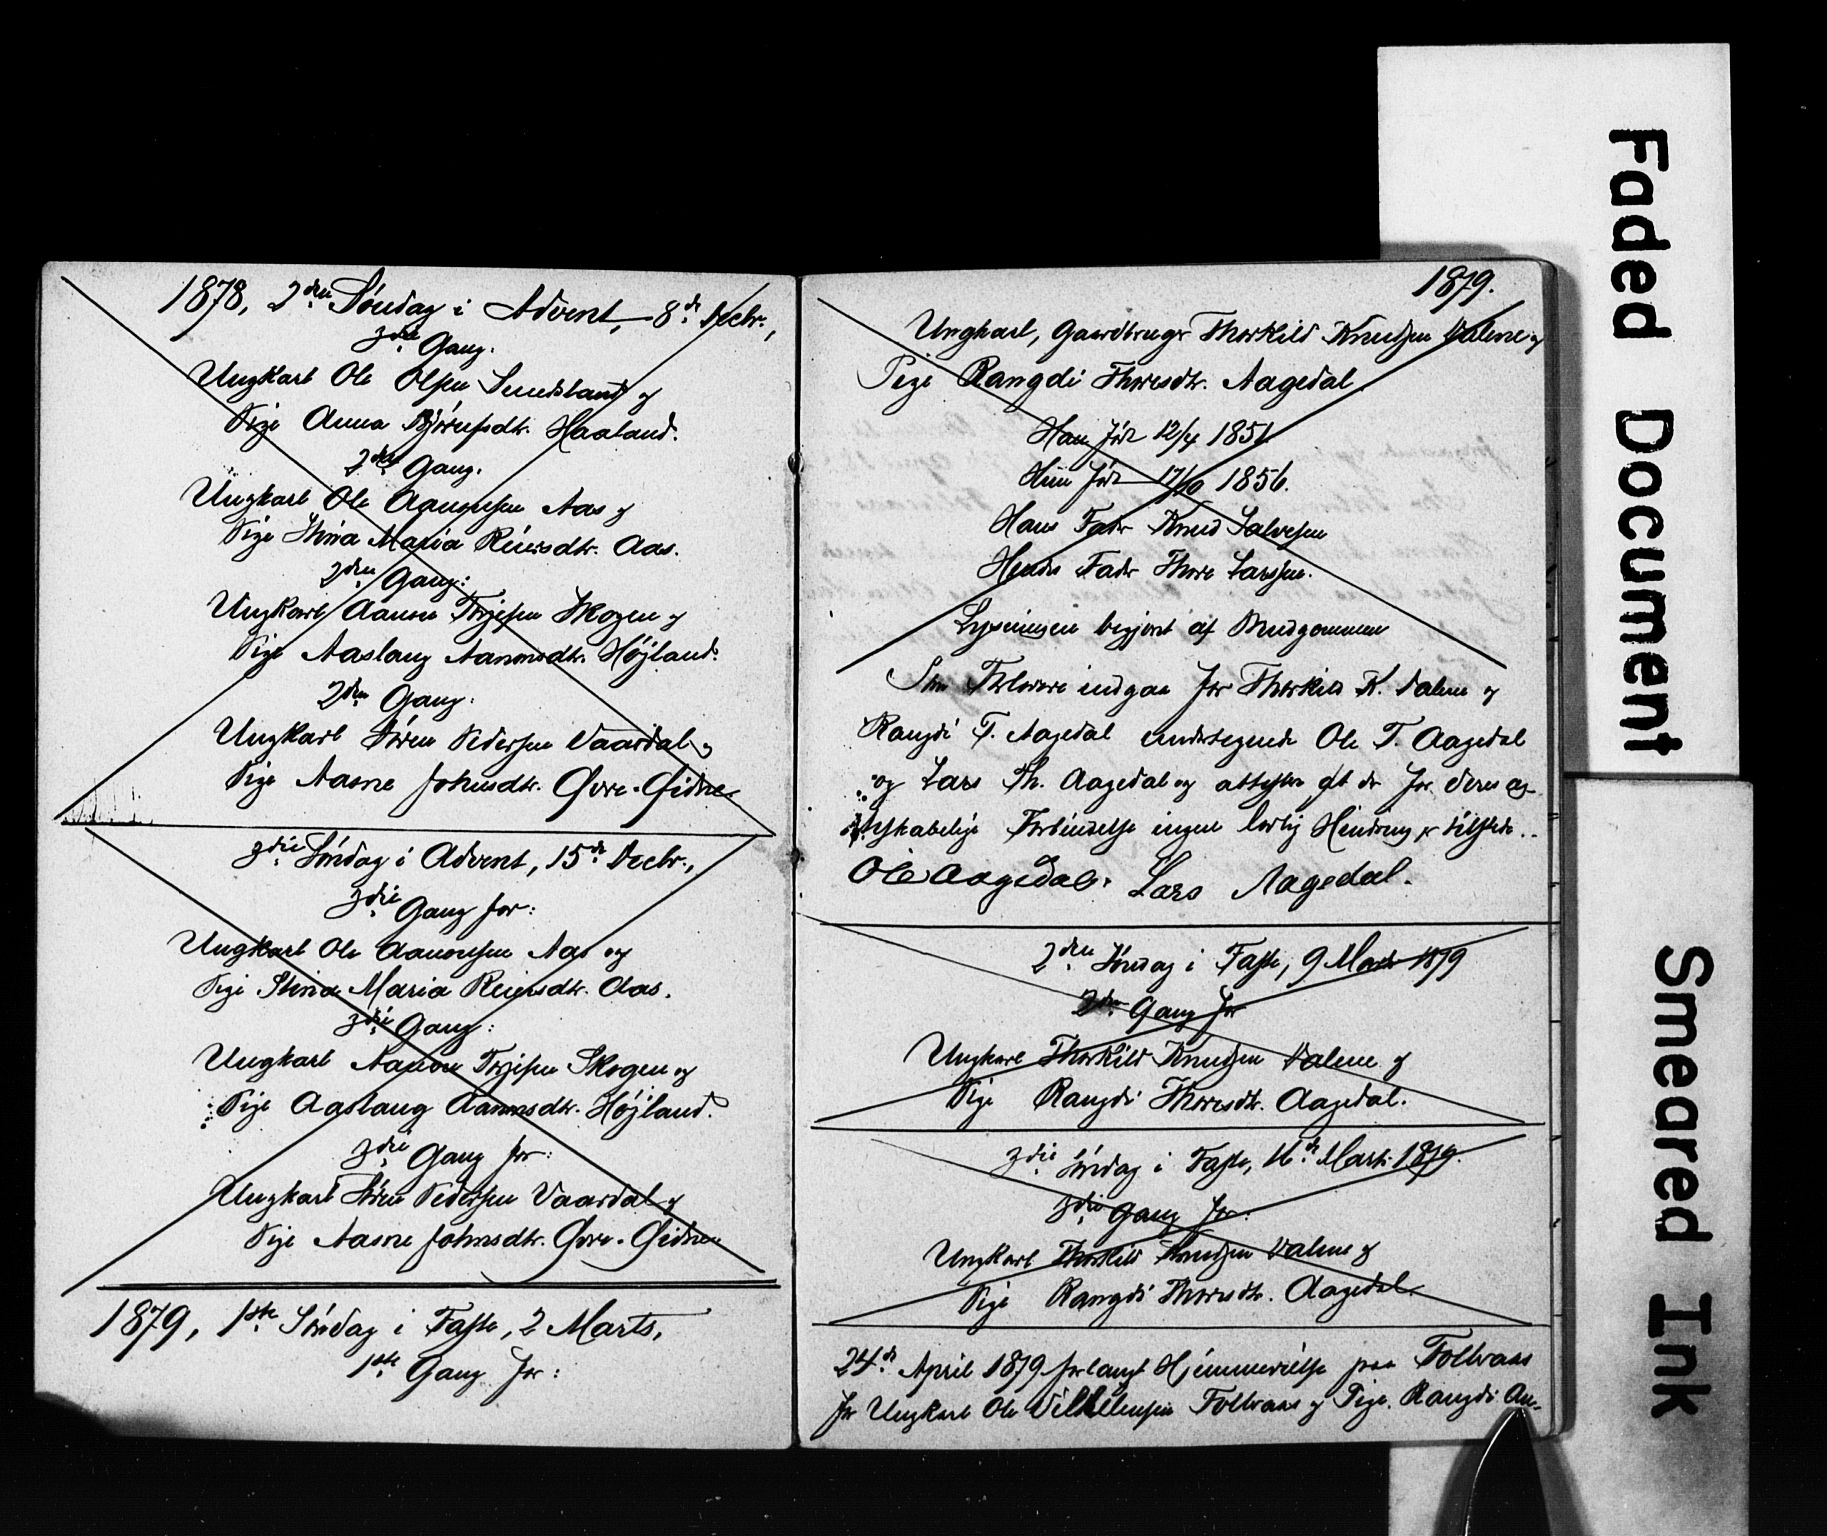 1878, 2den Søndag i Advent, 8de Decbr.,
3die Gang.
Ungkarl Ole Olsen Sundsland og
Pige Anna Bjørnsdtr. Haaland.
2den Gang.
Ungkarl Ole Aanonsen Aas og
Pige Stina Maria Reiersdtr. Aas.
2den Gang:
Ungkarl Aanon Terjesen Skogen og
Pige Aaslaug Aanonsdtr. Højland.
2den Gang:
Ungkarl Søren Pedersen Vaardal og
Pige Aasne Johnsdtr. Øvre-Øidne.
3die Søndag i Advent, 15de Decbr.,
3die Gang for:
Ungkarl Ole Aanonsen Aas og
Pige Stina Maria Reiersdtr. Aas.
3die Gang:
Ungkarl Aanon Terjesen Skogen og
Pige Aaslaug Aanonsdtr. Højland.
3die Gang for:
Ungkarl Søren Pedersen Vaardal og
Pige Aasne Johnsdtr. Øvre-Øidne
1879, 1ste Søndag i Faste, 2 Marts,
1ste Gang for:
1879.
Ungkarl, Gaardbruger Thorkild Knudsen Valene og
Pige Rangdi Thoresdtr. Aagedal.
Han født 12/4 1851
Hun født 17/10 1856.
Hans Fader Knud Salvesen
Hendes Fader Thore Larssen.
Lysningen begjært af Brudgommen
Som Forlovere indgaa for Thorkild K. Valene og
Rangdi T. Aagedal undertegnede Ole T. Aagedal
og Lars Th. Aagedal og attestere at der for deres æg-
teskabelige Forbindelse ingen lovlig Hindring er tilstede.
Ole Aagedal. Lars Aagedal.
2den Søndag i Faste, 9 Marts 1879
2den Gang for
Ungkarl Thorkild Knudsen Valene og
Pige Rangdi Thoresdtr. Aagedal.
3die Søndag i Faste, 16de Marts 1879.
3die Gang for:
Ungkarl Thorkild Knudsen Valene og
Pige Rangdi Thoresdtr. Aagedal.
24de April 1879 forlangt Hjemmevielse paa Foltvaas
for Ungkarl Ole Foltvaas og Pige Rangdi An-
Faded Document
Smeared Ink